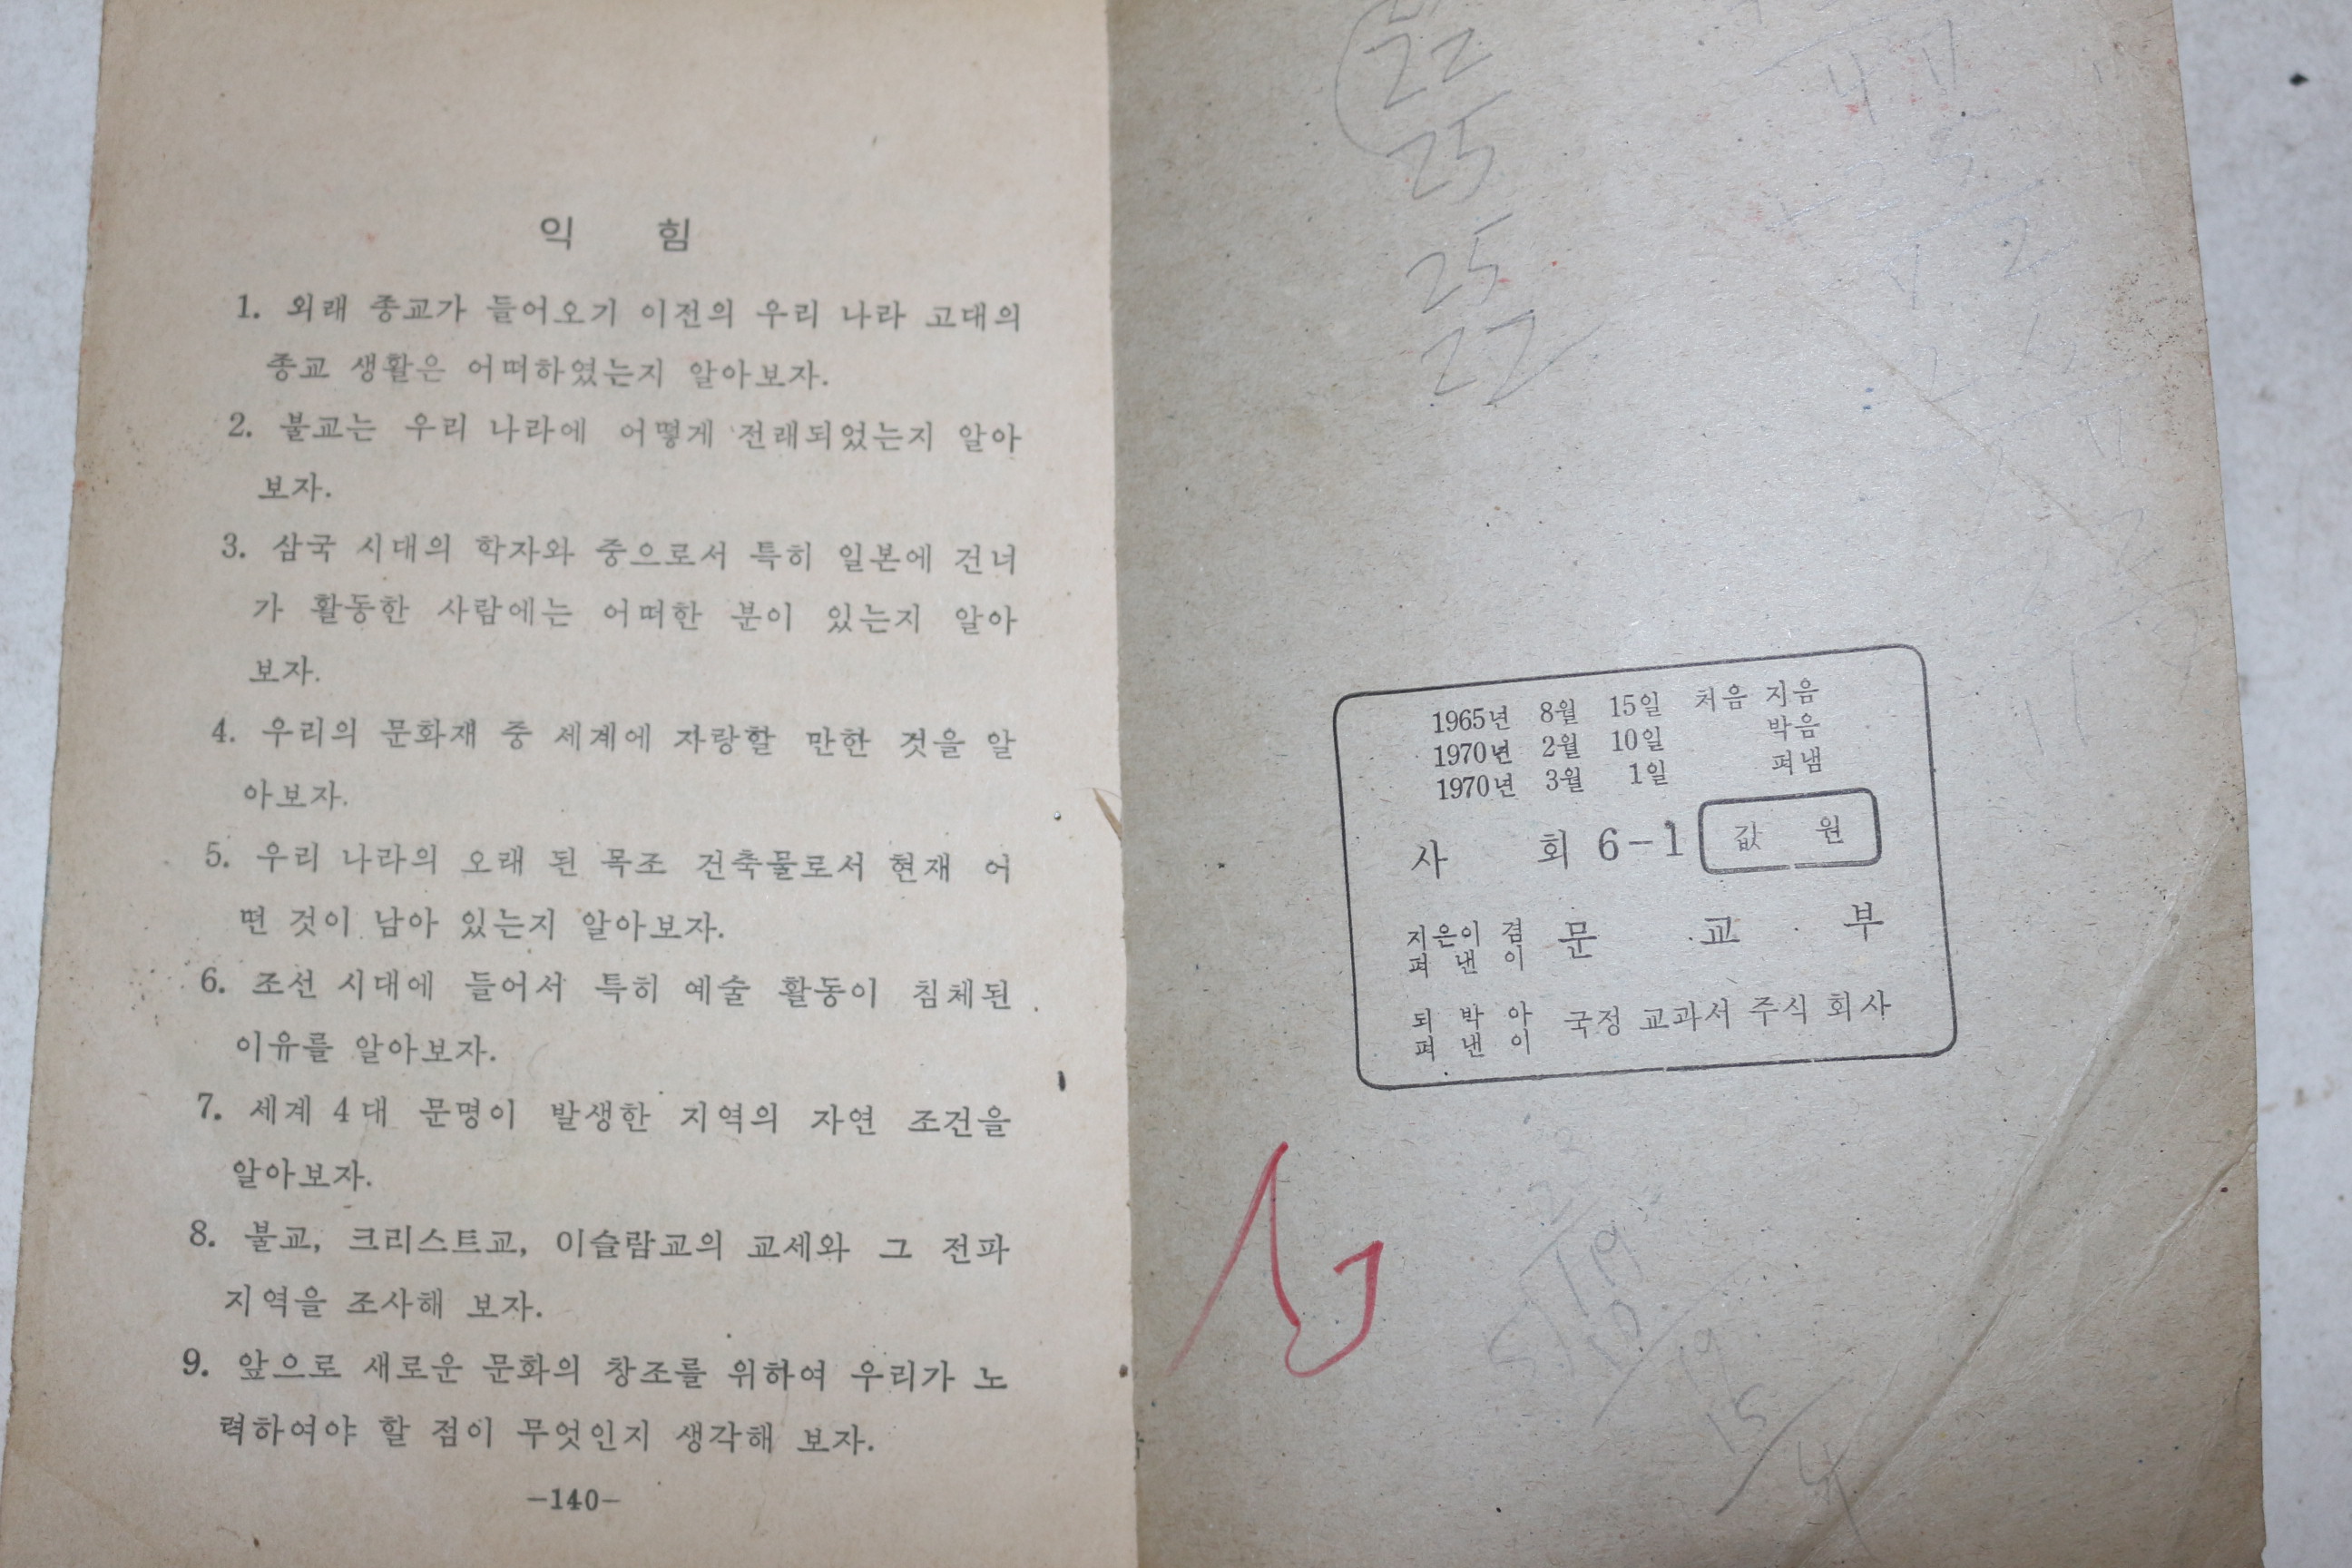 익 힘
1. 외래 종교가 들어오기 이전의 우리 나라 고대의
종교 생활은 어떠하였는지 알아보자.
2. 불교는 우리 나라에 어떻게 전래되었는지 알아
보자.
3. 삼국 시대의 학자와 중으로서 특히 일본에 건너
가 활동한 사람에는 어떠한 분이 있는지 알아
보자.
4. 우리의 문화재 중 세계에 자랑할 만한 것을 알
아보자.
5. 우리 나라의 오래 된 목조 건축물로서 현재 어
떤 것이 남아 있는지 알아보자.
6. 조선 시대에 들어서 특히 예술 활동이 침체된
이유를 알아보자.
7. 세계 4대 문명이 발생한 지역의 자연 조건을
알아보자.
8. 불교, 크리스트교, 이슬람교의 교세와 그 전파
지역을 조사해 보자.
9. 앞으로 새로운 문화의 창조를 위하여 우리가 노
력하여야 할 점이 무엇인지 생각해 보자.
-140-
22
25
25
22
1965년 8월 15일 처음 지음
1970년 2월 10일 박음
1970년 3월 1일 펴냄
사 회 6-1 값 원
지은이 겸
펴 낸 이
문 교 부
되 박 아
펴 낸 이
국정 교과서 주식 회사
19
15
4